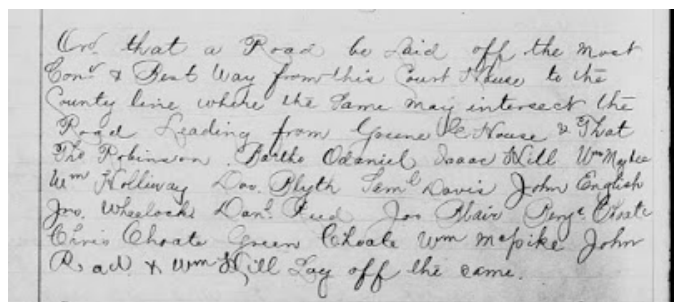 Ord. that a Road be Laid off the most
Conv. & Best Way from this Court House to the
County line where the Same may intersect the
Road Leading from Greene Ct House & That
Tho Robinson Bartho Odaniel Isaac Hill Wm
Wm Holliway Dos. Blyth Saml Davis John English
Jno. Wheelock Danl. Reed Jos Blair Benj. Choate
Chris Choate Green Choate Wm McPike John
Read & Wm Hill Lay off the same.